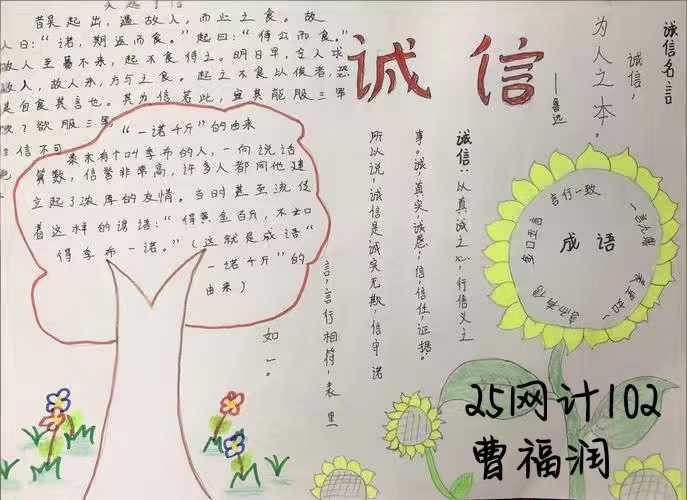 吴起守信
昔吴起出，遇故人，而止之食。故
人曰：“诺，期返而食。”起曰：“待公而食。”
故人至暮不来，起不食待之。明日早，令人求
故人，故人来，方与之食。起之不食以俟者，恐
其自食其言也。其为信若此，宜其能服三军
欤？欲服三军，
信不可
“一诺千斤”的由来
秦末有个叫季布的人，一向说话
算数，信誉非常高，许多人都同他建
立起了浓厚的友情。当时甚至流传
着这样的谚语：“得黄金百斤，不如
得季布一诺。”（这就是成语“
一诺千斤”的
由来）
诚信
诚信名言
诚信，
为人之本。
——鲁迅
诚信：以真诚之心，行信义之
事。诚，真实，诚恳；信，信任，证据。
所以说，诚信是诚实无欺，信守诺
言，言行相符，表里
如一。
成语
言行一致
一言九鼎
表里如一
言而有信
金口玉言
25网计102
曹福润